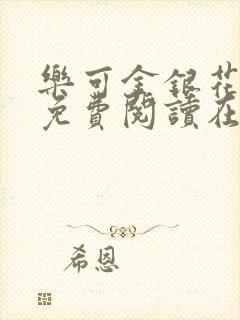 樂可金銀花
免費閱讀在
希恩